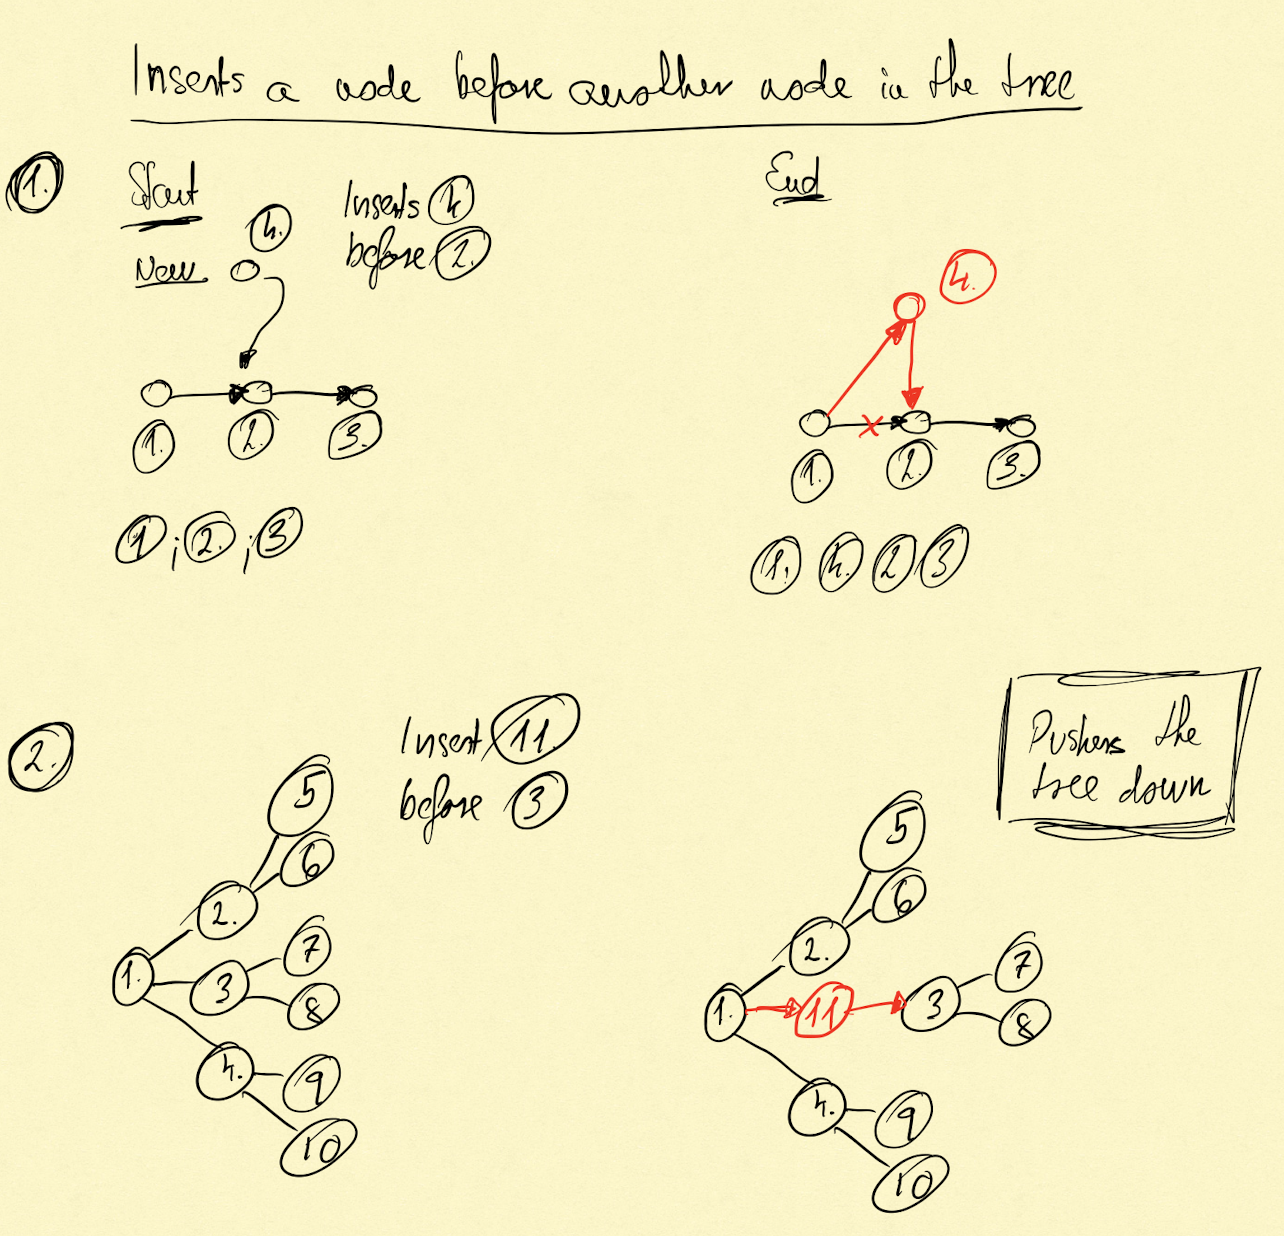 Inserts a node before another node in the tree
1.
Start
Inserts 4
before 2.
4.
New
1. 2. 3.
1 ; 2. ; 3
End
4.
1. 2. 3.
1. 4. 2 3
2.
Insert 11.
before 3
5
6
2.
7
1.
3
8
4.
9
10
Pushes the
tree down
5
6
2.
7
1.
11
3
8
4.
9
10